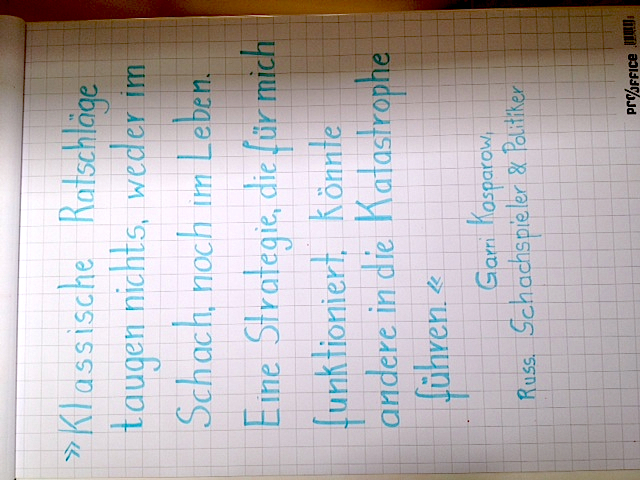 »Klassische Ratschläge
taugen nichts, weder im
Schach, noch im Leben.
Eine Strategie, die für mich
funktioniert, könnte
andere in die Katastrophe
führen.«
Garri Kasparow,
Russ. Schachspieler & Politiker
pro/office